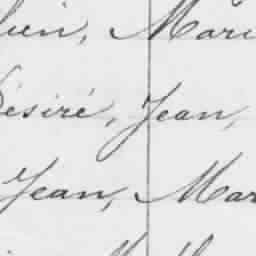 lien, Mari
Désiré, Jean,
Jean, Mar